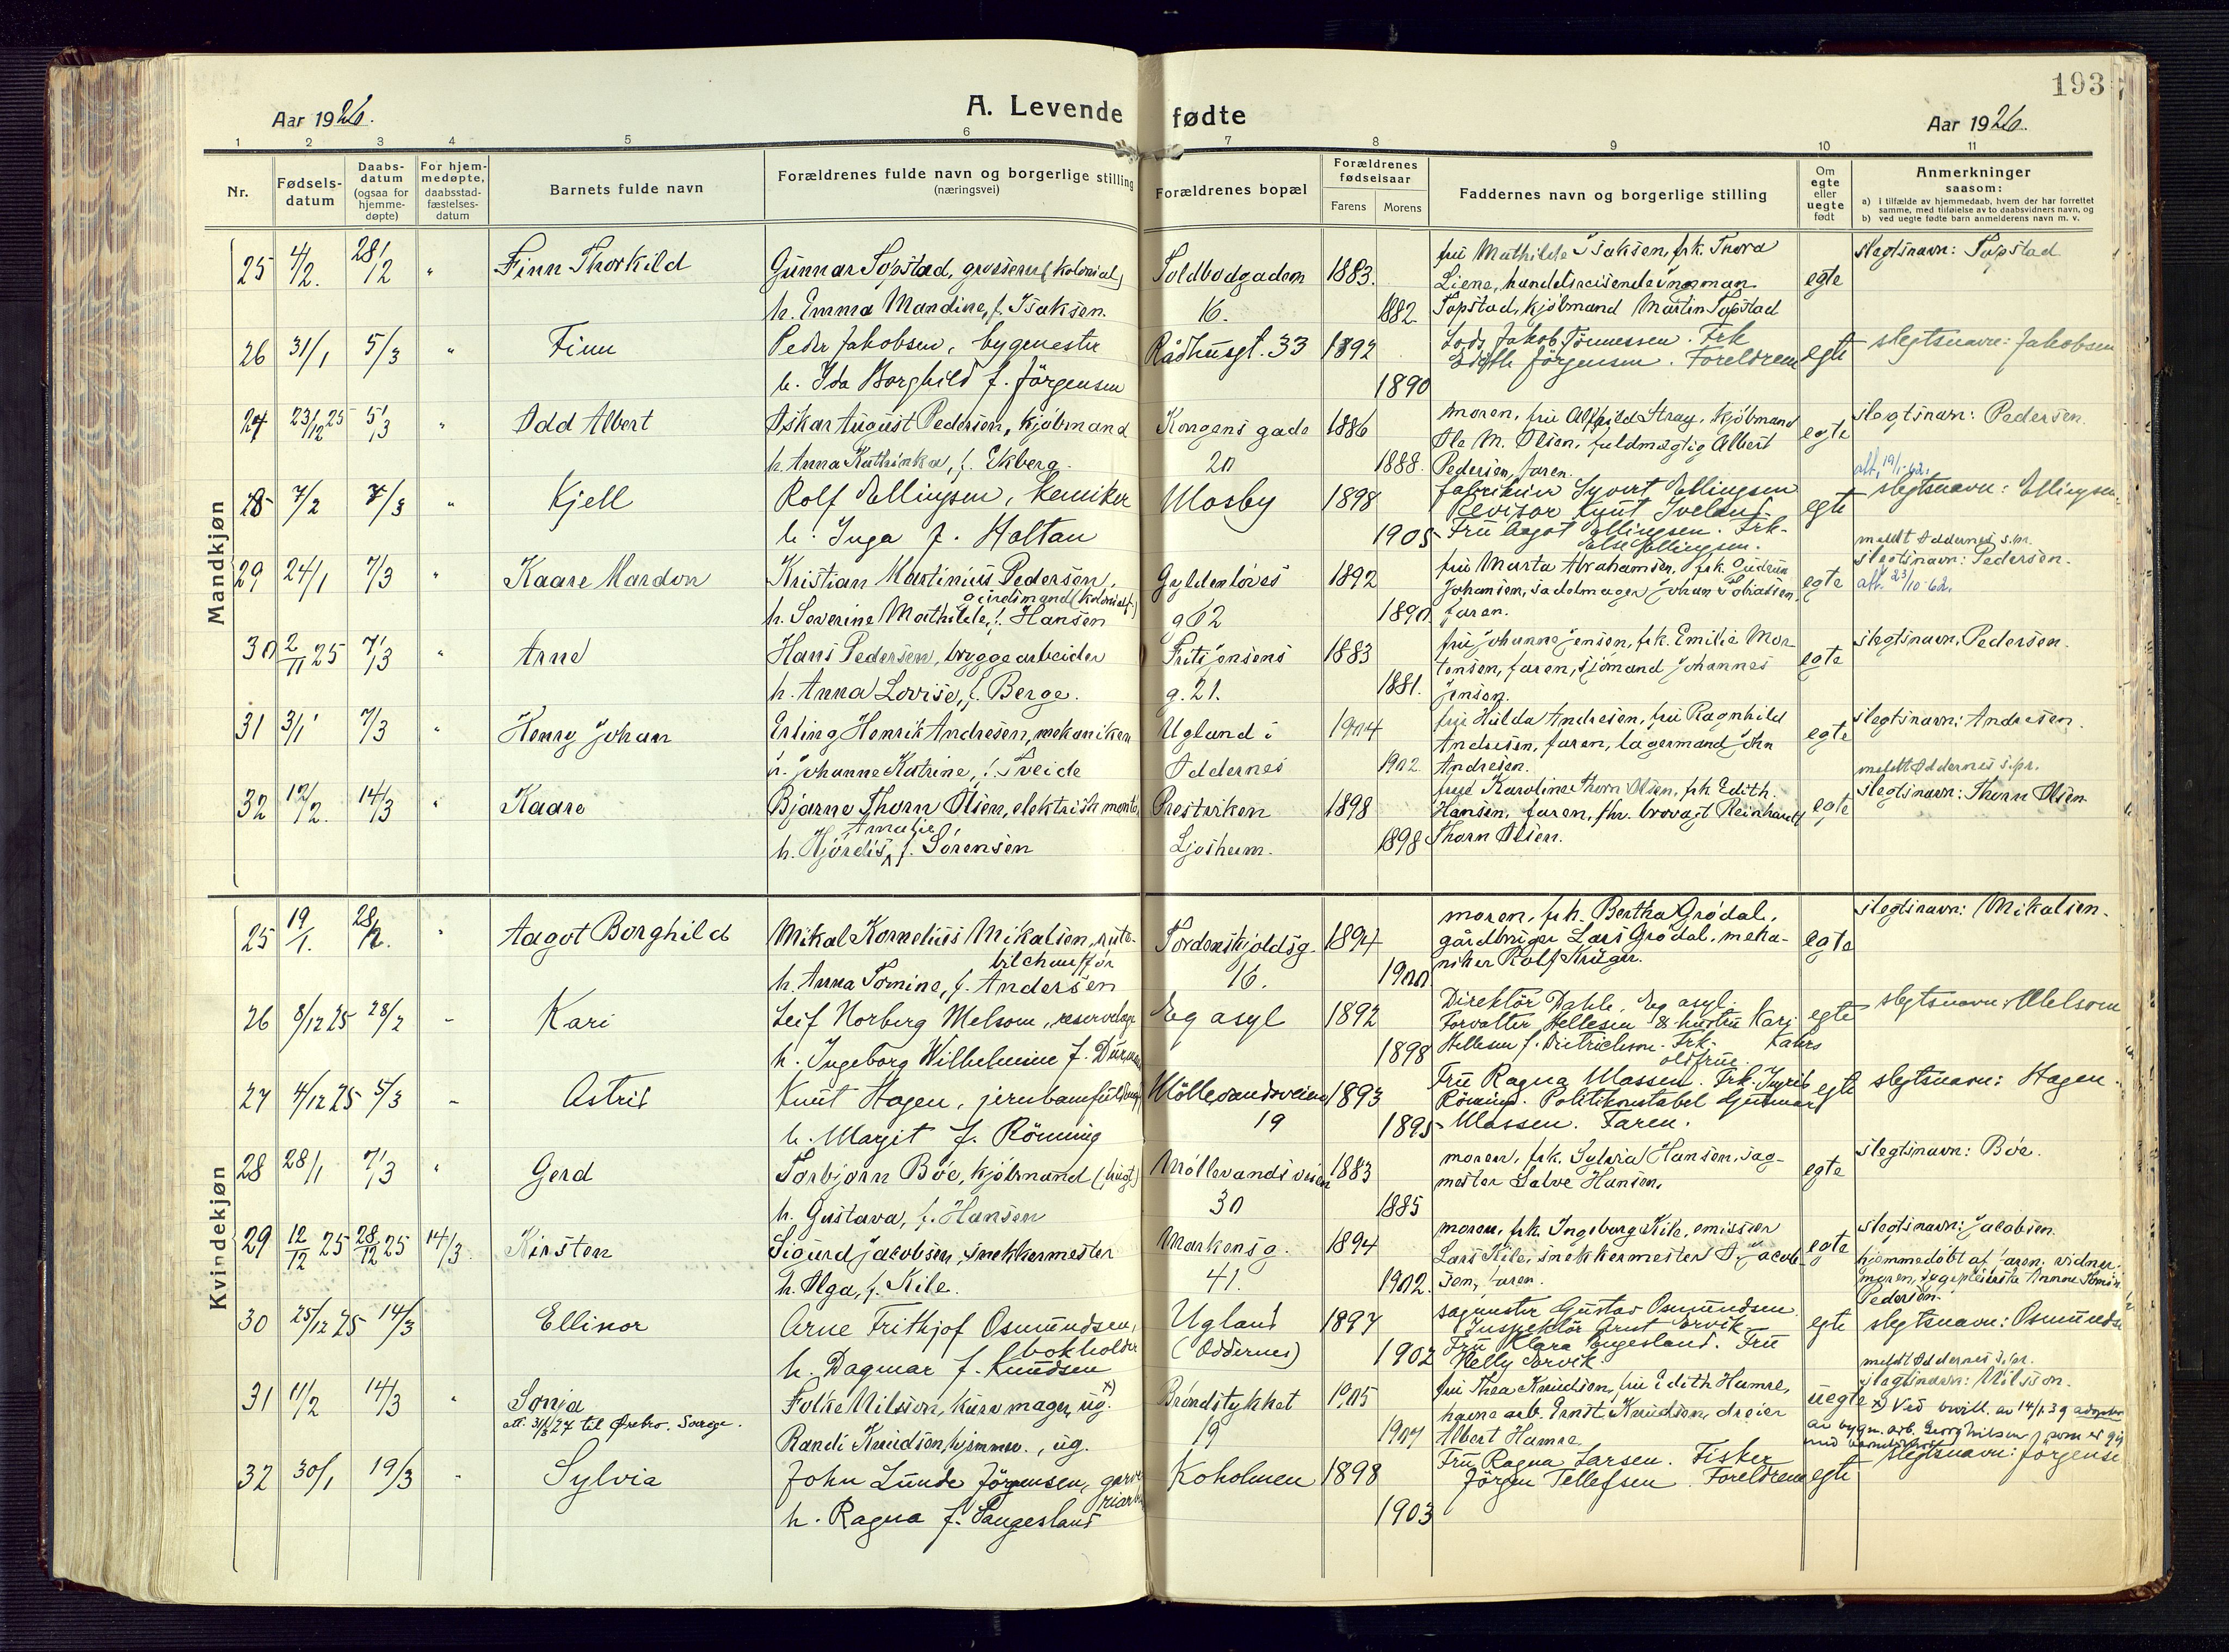 193
Aar 1926.
A. Levende fødte
Aar 1926.
1 2 3 4 5 6 7 8 9 10 11
Nr.
Fødsels-
datum
Daabs-
datum
(ogsaa for
hjemme-
døpte)
For hjem-
medøpte,
daabsstad-
fæstelses-
datum
Barnets fulde navn
Forældrenes fulde navn og borgerlige stilling
(næringsvei)
Forældrenes bopæl
Forældrenes
fødselsaar
Farens Morens
Faddernes navn og borgerlige stilling
Om
egte
eller
uegte
født
Anmerkninger
saasom:
a) i tilfælde av hjemmedaab, hvem der har forrettet
samme, med tilføielse av to daabsvidners navn, og
b) ved uegte fødte barn anmelderens navn m. v.
Mandkjøn
25 4/2. 28/12 " Finn Thorkild
Gunnar Topstad, grosserer (kolonial)
h. Emma Mandine, f. Isaksen.
Toldbodgaden
16.
1883. 1882.
fru Mathilde Isaksen, frk. Thora
Liene, handelsreisende Normann
Topstad, kjøbmand Martin Topstad
egte
slegtsnavn: Topstad
26 31/1 5/3 " Finn
Peder Jakobsen, bygmester
h. Ida Borghild f. Jörgensen
Rådhusgt. 33
1892 1890
Lods Jakob Tönnessen. Frk
Edith Jörgensen. Foreldrene
egte
slegtsnavn: Jakobsen
27 23/12 25 5/3 " Odd Albert
Oskar August Pedersen, kjøbmand
h. Anna Kathinka, f. Ekberg.
Kongens gade
20
1886 1888.
moren, fru Alfhild Stray, kjøbmand
Ole M. Olsen, fuldmægtig Albert
Pedersen, faren.
egte
slegtsnavn: Pedersen.
att. 19/1-62.
28 7/2 7/3 " Kjell
Rolf Ellingsen, kemiker
h. Inga f. Holtan
Mosby
1898 1905
fabrikeier Syvert Ellingsen
Revisor Knut Iveland
Fru Aagot Ellingsen. Frk.
Else Ellingsen.
egte
slegtsnavn: Ellingsen
meldt Oddernes s.pr.
29 24/1 7/3 " Kaare Mardon
Kristian Martinius Pedersen,
h. Severine Mathilde, f. Hansen
Gyldenløves
g 62
1892 1890
fru Marta Abrahamsen, frk. Gudrun
Johansen, sadelmager Johan Tobiassen,
faren.
egte
slegtsnavn: Pedersen.
att. 23/10-62.
30 2/11 25 7/3 " Arne
Hans Pedersen, bryggearbeider
h. Anna Lovise, f. Berge.
Fritz Jensens
g. 21.
1883 1881.
fru Johanne Jensen, frk. Emilie Mor-
tensen, faren, sjømand Johannes
Jensen.
egte
slegtsnavn: Pedersen.
31 3/1 7/3 " Henry Johan
Erling Henrik Andresen, mekaniker
h. Johanne Katrine, f. Tveide
Ugland i
Oddernes
1904 1902.
fru Hulda Andresen, fru Ragnhild
Andresen, faren, lagermand John
Andresen.
egte
slegtsnavn: Andresen.
meldt Oddernes s.pr.
32 12/2. 14/3 " Kaare
Bjarne Thorn Olsen, elektrisk montør
Amalie
h. Hjördis, f. Sörensen
Prestviken
Ljosheim.
1898 1898
frue Karoline Thorn Olsen, frk Edith
Hansen, faren, fhv. brovagt Reinhardt
Thorn Olsen.
egte
slegtsnavn: Thorn Olsen
Kvindekjøn
25 19/1. 28/2. " Aagot Borghild
Mikal Kornelius Mikalsen, rute-
bilchauffør
h. Anna Tomine, f. Andersen
Tordenskjoldsg.
16.
1894 1900
moren, frk. Bertha Grödal,
gårdbruger Lars Grödal, meka-
niker Rolf Krüger.
egte
slegtsnavn: Mikalsen.
26 8/12 25 28/2 " Kari
Leif Norberg Melsom, reservelæge
h. Ingeborg Wilhelmine f.
Eg asyl
1892 1898
Direktör Dahle, Eg asyl.
Forvalter Hellesen & hustru Kari
Hellesen f. Dietrichson. Frk.
oldfrue.
egte
slegtsnavn: Melsom
27 4/12 25 5/3 " Astrid
Knut Hagen, jernbanefuldmægt.
h. Margit f. Rönning
Möllevandsveien
19
1893 1895
Fru Ragna Massen. Frk. Ingrid
Rönning. Politikonstabel
Massen. Faren.
egte
slegtsnavn: Hagen.
28 28/1 7/3 " Gerd
Torbjörn Böe, kjøbmand
h. Gustava, f. Hansen
Møllevandsveien
30
1883 1885
moren, frk. Sylvia Hansen, sag-
mester Salve Hansen.
egte
slegtsnavn: Böe.
29 12/12 25 28/12 25 14/3. Kirsten
Sigurd Jacobsen, snekkermester
h. Olga, f. Kile.
Markensg.
41.
1894 1902.
moren, frk. Ingeborg Kile, emissær
Lars Kile, snekkermester A. Jacob-
sen, faren.
egte
slegtsnavn: Jacobsen.
hjemmedöbt af faren, vidner:
moren, sygepleierske Anne Tomine
Pedersen.
30 25/12 25 14/3 Ellinor
Arne Frithjof Osmundsen,
bokholder
h. Dagmar f. Knudsen
Ugland
(Oddernes)
1897 1902
sagmester Gustav Osmundsen
Inspektör Arnt Ervik
Fru Klara Engesland. Fru
Helly Ervik
egte
slegtsnavn: Osmunds
meldt Oddernes s.pr.
31 11/2 14/3 " Sonja
att. 31/3 27 til Örebro. Sverige.
Folke Nilsson, kurvmager, ug. x)
Randi Knudsen, hjemmev., ug.
Brøndstykket
19
1905 1907
fru Thea Knudsen, fru Edith Hamre,
havnearb. Ernst Knudsen, dreier
Albert Hamre
uegte
slegtsnavn: Nilsson.
x) Ved bevill. av 14/1 39 adoptert
av bygn.arb. Georg Nilsen, som er gift
med barnets mor
32 30/1 19/3 " Sylvia
John Lunde Jörgensen, garve-
riarb.
h. Ragna f. Saugesland
Koholmen
1898 1903
Fru Ragna Larsen. Fisker
Jörgen Tellefsen. Foreldrene
egte
slegtsnavn: Jörgense